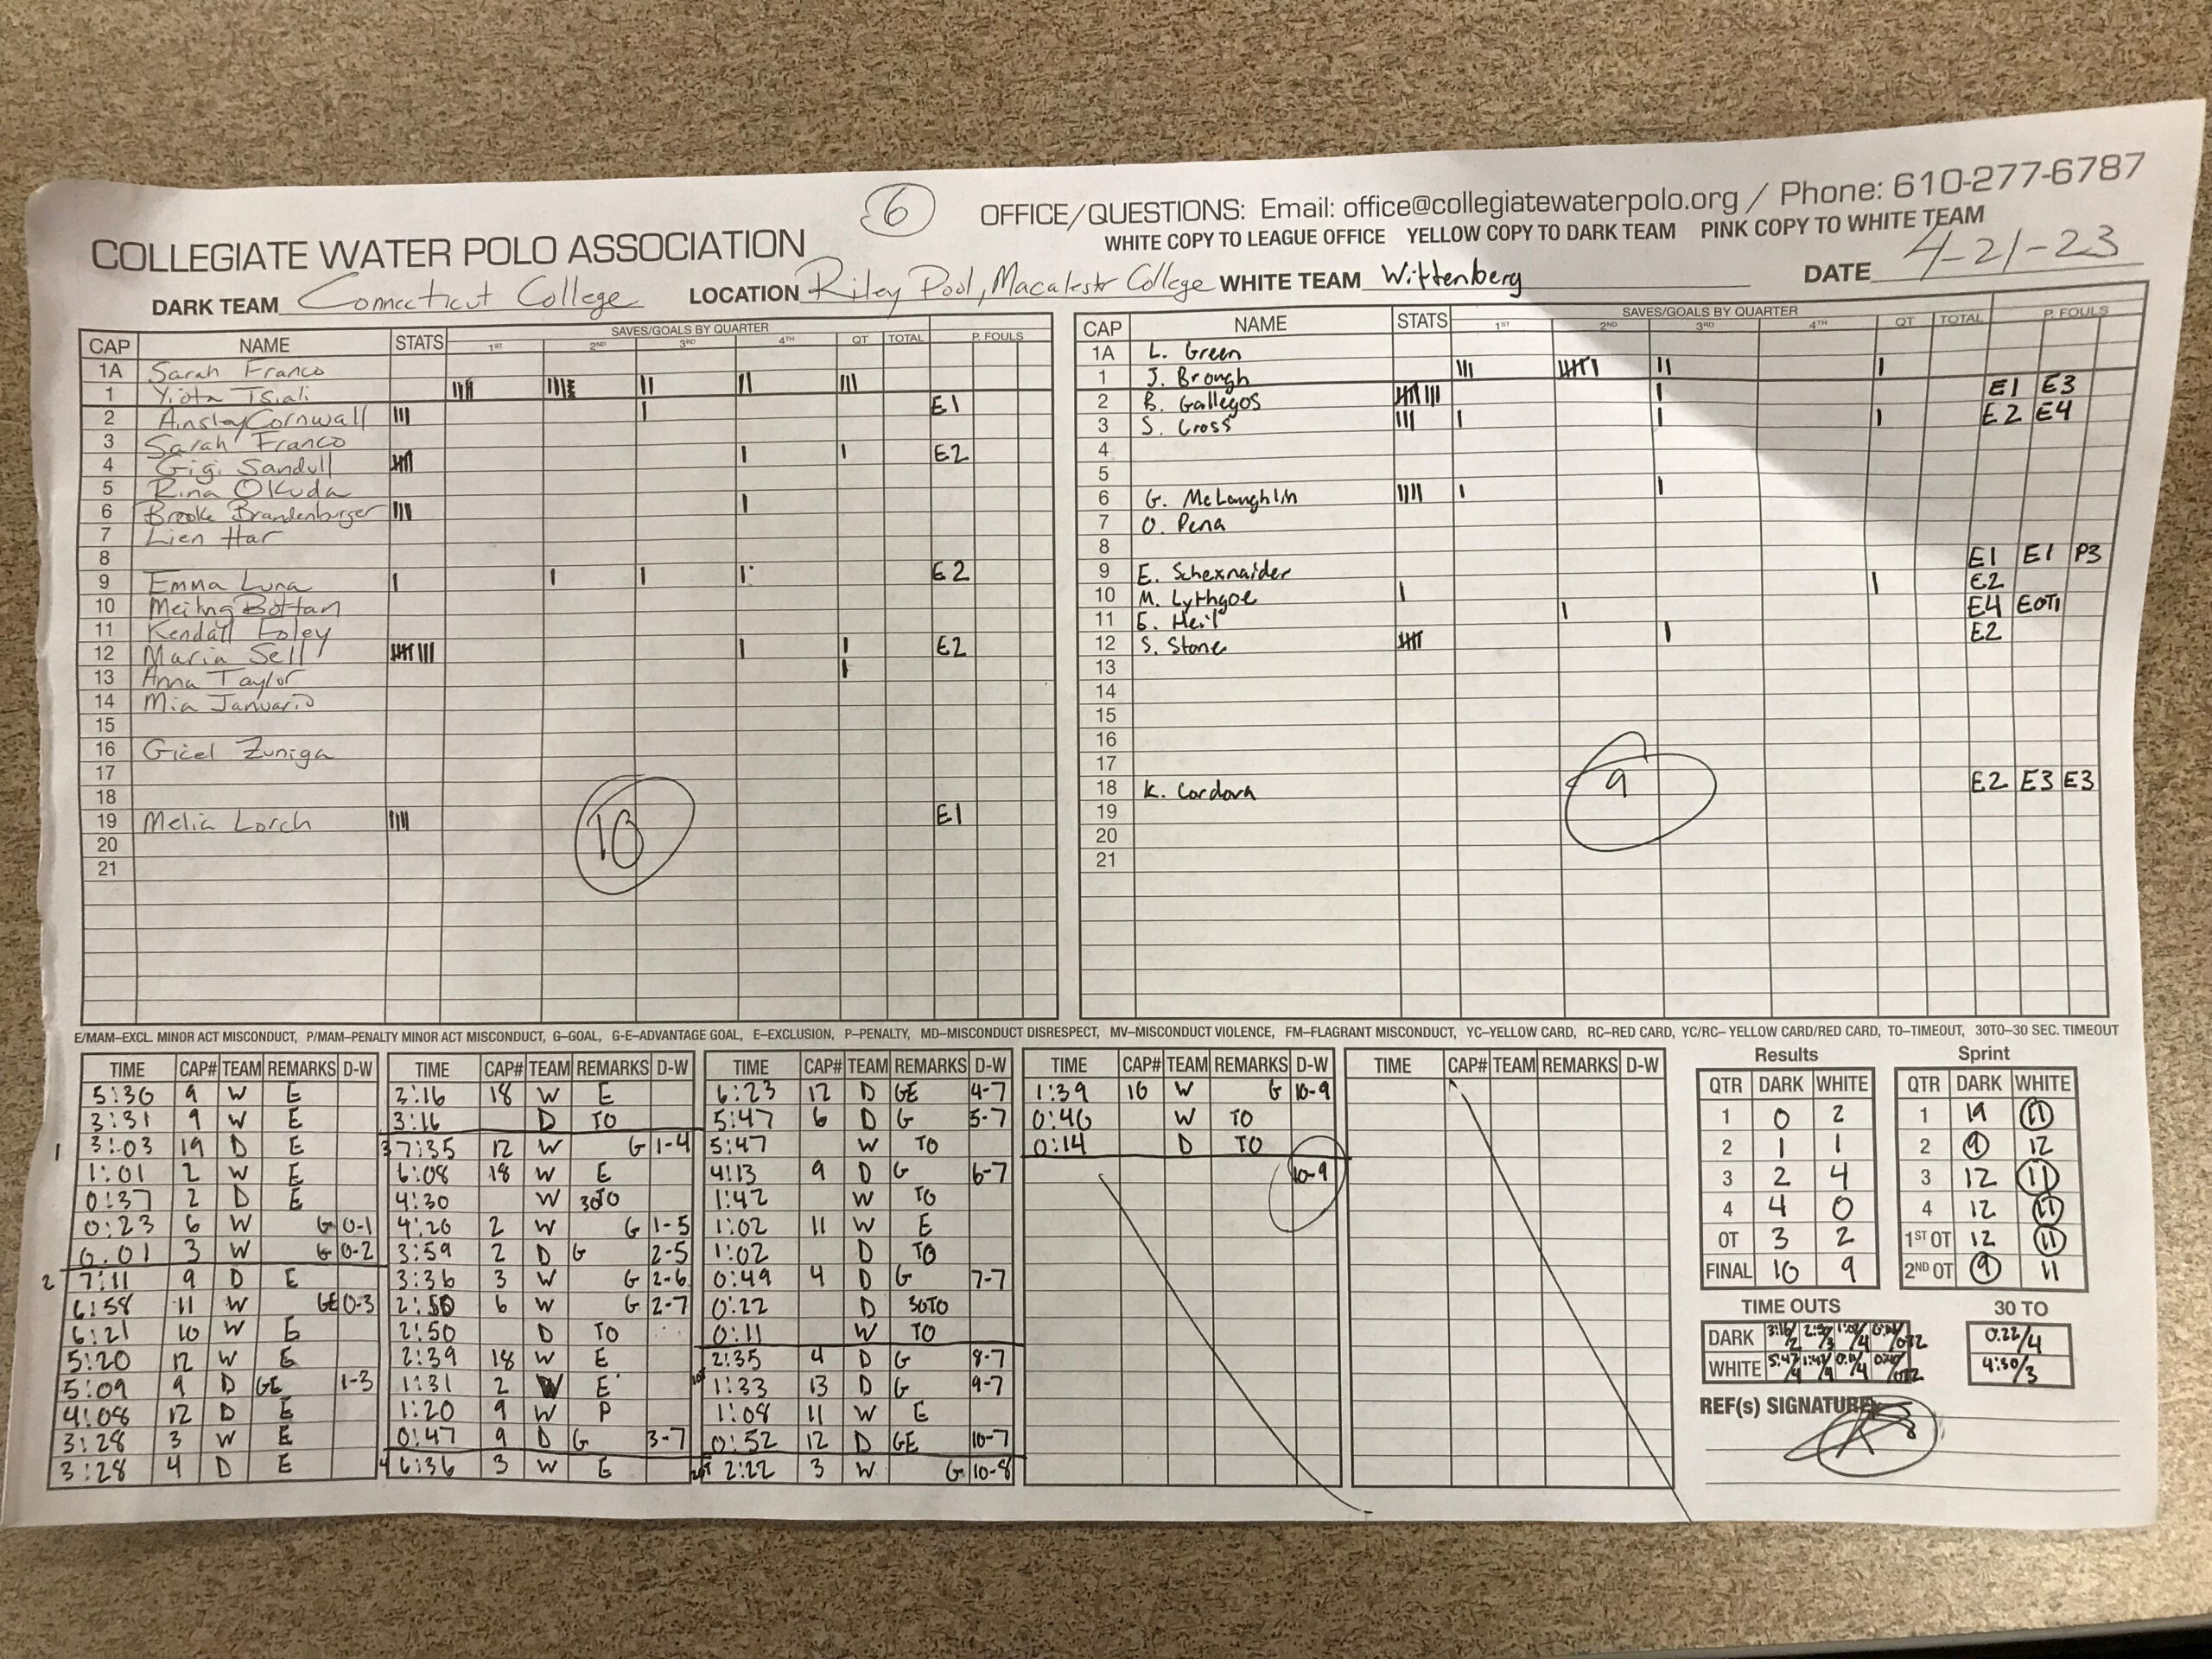 6
OFFICE/QUESTIONS: Email: office@collegiatewaterpolo.org / Phone: 610-277-6787
COLLEGIATE WATER POLO ASSOCIATION
WHITE COPY TO LEAGUE OFFICE YELLOW COPY TO DARK TEAM PINK COPY TO WHITE TEAM
DARK TEAM Connecticut College LOCATION Riley Pool, Macalestr College WHITE TEAM Wittenberg DATE 4-21-23
CAP NAME STATS SAVES/GOALS BY QUARTER 1ST 2ND 3RD 4TH OT TOTAL P. FOULS
1A Sarah Franco
1 Yiota Tsiali
2 Ainsley Cornwall E1
3 Sarah Franco
4 Gigi Sandull E2
5 Rina Okuda
6 Brooke Brandenburger
7 Lien Har
8
9 Emma Luna E2
10 Meiting Bottan
11 Kendall Foley
12 Maria Sell E2
13 Anna Taylor
14 Mia Januario
15
16 Gicel Zuniga
17
18
19 Melia Lorch E1
20
21
10
CAP NAME STATS SAVES/GOALS BY QUARTER 1ST 2ND 3RD 4TH OT TOTAL P. FOULS
1A L. Green
1 J. Brough
2 B. Gallegos E1 E3
3 S. Cross E2 E4
4
5
6 G. McLaughlin
7 O. Pena
8
9 E. Schexnaider E1 E1 P3
10 M. Lythgoe E2
11 E. Heil E4 EOT1
12 S. Stone E2
13
14
15
16
17
18 K. Cordova E2 E3 E3
19
20
21
9
E/MAM–EXCL. MINOR ACT MISCONDUCT, P/MAM–PENALTY MINOR ACT MISCONDUCT, G–GOAL, G-E–ADVANTAGE GOAL, E–EXCLUSION, P–PENALTY, MD–MISCONDUCT DISRESPECT, MV–MISCONDUCT VIOLENCE, FM–FLAGRANT MISCONDUCT, YC–YELLOW CARD, RC–RED CARD, YC/RC– YELLOW CARD/RED CARD, TO–TIMEOUT, 30TO–30 SEC. TIMEOUT
TIME CAP# TEAM REMARKS D-W
5:36 9 W E
3:31 9 W E
1 3:03 19 D E
1:01 2 W E
0:37 2 D E
0:23 6 W G 0-1
0:01 3 W G 0-2
2 7:11 9 D E
6:58 11 W GE 0-3
6:21 10 W E
5:20 12 W E
5:09 9 D GE 1-3
4:08 12 D E
3:28 3 W E
3:28 4 D E
TIME CAP# TEAM REMARKS D-W
3:16 18 W E
3:16 D TO
3 7:35 12 W G 1-4
6:08 18 W E
4:30 W 30TO
4:20 2 W G 1-5
3:59 2 D G 2-5
3:36 3 W G 2-6
2:50 6 W G 2-7
2:50 D TO
2:39 18 W E
1:31 2 W E
1:20 9 W P
0:47 9 D G 3-7
4 6:36 3 W E
TIME CAP# TEAM REMARKS D-W
6:23 12 D GE 4-7
5:47 6 D G 5-7
5:47 W TO
4:13 9 D G 6-7
1:42 W TO
1:02 11 W E
1:02 D TO
0:49 4 D G 7-7
0:22 D 30TO
0:11 W TO
2:35 4 D G 8-7
1:33 13 D G 9-7
1:08 11 W E
0:52 12 D GE 10-7
2:22 3 W G 10-8
TIME CAP# TEAM REMARKS D-W
1:39 10 W G 10-9
0:40 W TO
0:14 D TO
10-9
TIME CAP# TEAM REMARKS D-W
Results
QTR DARK WHITE
1 0 2
2 1 1
3 2 4
4 4 0
OT 3 2
FINAL 10 9
Sprint
QTR DARK WHITE
1 19 11
2 9 12
3 12 11
4 12 11
1ST OT 12 11
2ND OT 9 11
TIME OUTS
DARK 3:16/2 2:50/3 1:02/4
WHITE 5:47/4 1:42/4 0:11/4
30 TO
0:22/4
4:30/3
REF(s) SIGNATURE